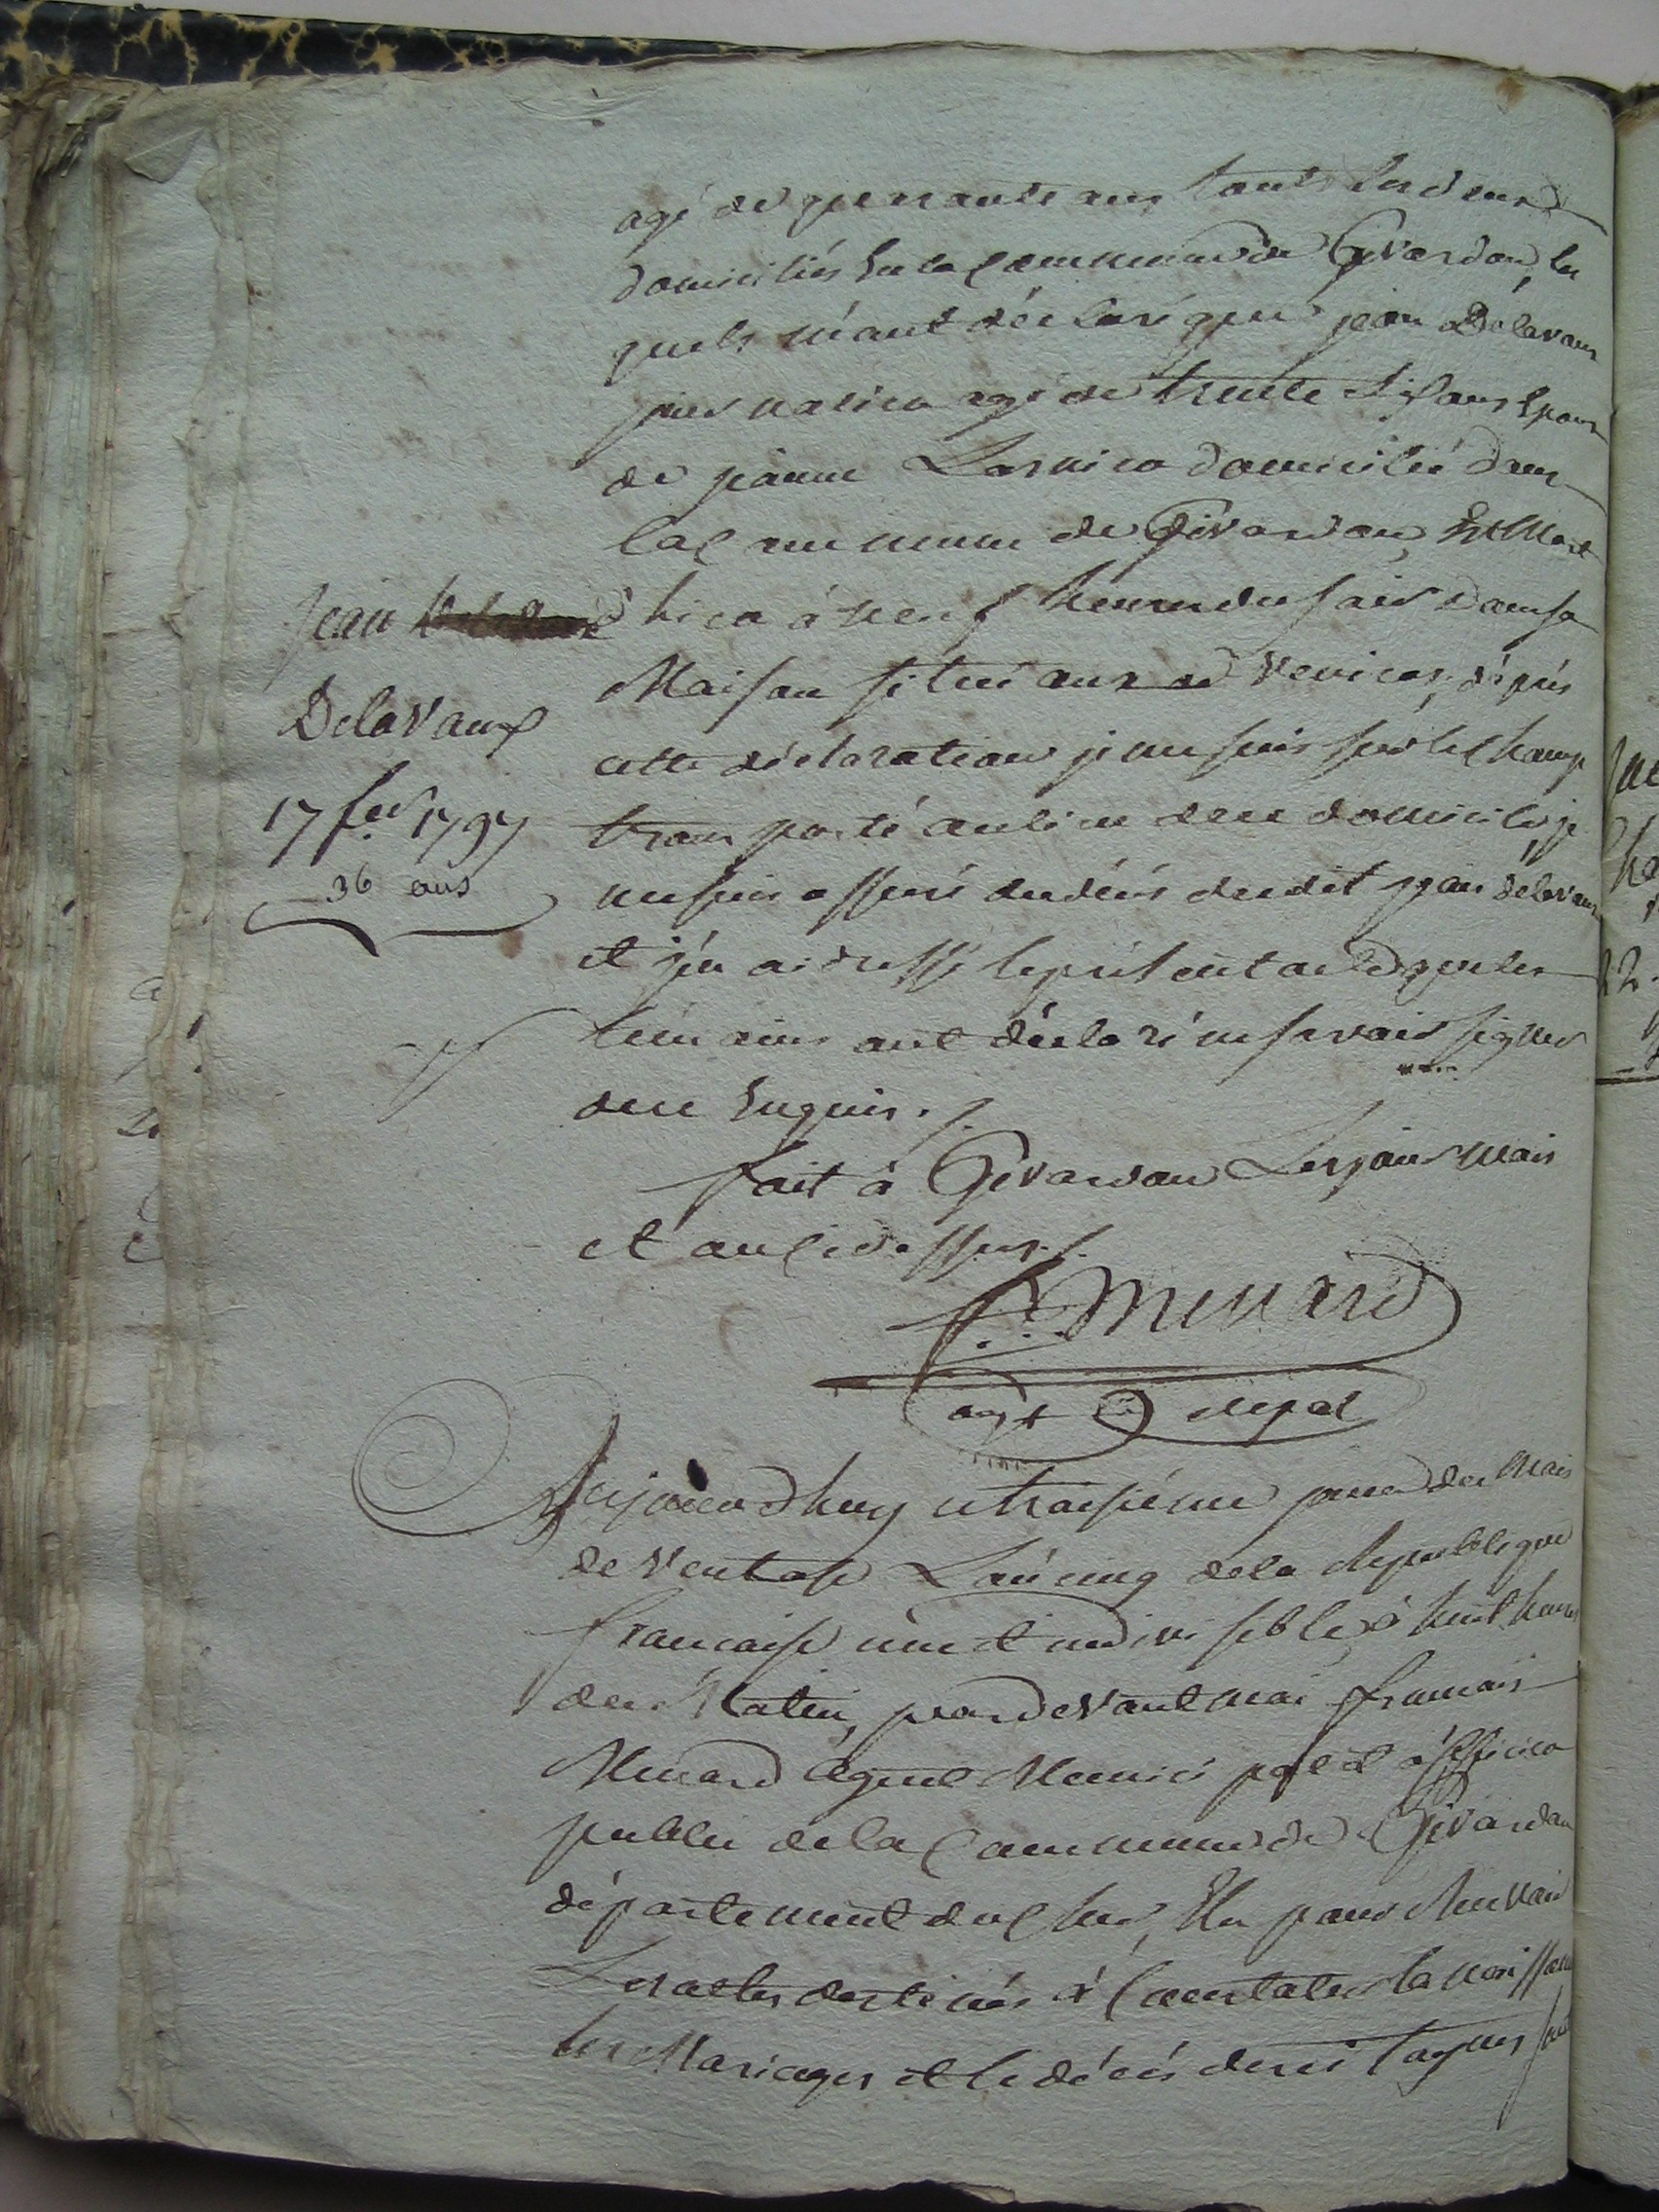 agé de quarante ans touts les deux
domiciliés en la Commune de Givardon, les
quels m'ont déclaré que jean Delavaux
journalier agé de trente six ans Epoux
de jeanne Lasnier domicilié dans
la Commune de Givardon, Est Mort
hier à neuf heures du soir dans sa
Maison située aux
cette déclaration je me suis sur le Champ
transporté au lieu de ce domicile, je
me suis assuré du décés du dit jean delavaux
et j'en ai dressé le présent acte que les
témoins ont déclaré ne savoir signer
de ce Enquis ./.
fait à Givardon Les jour mois
et an Ci dessus ./.
Jean
Delavaux
17 fer 1797
36 ans
f. Menard
agt mpal
Aujourd huy troisième jour du Mois
de Ventose L'an cinq de la République
francaise une et indivisible, à huit heures
du Matin, pardevant moi francois
Menard Agent Municipal et officier
public de la Commune de Givardon
département du Cher, Elu pour
Les actes destinés à Constater la naissance
les Mariages et le décés des citoyens